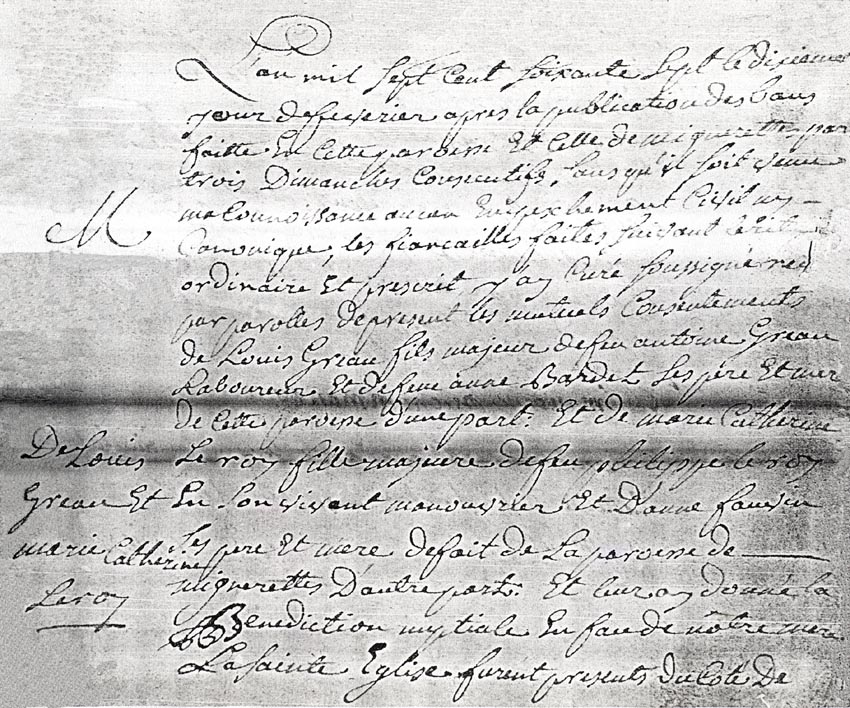 L'an mil sept cent soixante sept le dixieme
jour de fevrier apres la publication des bans
faitte En cette paroisse Et celle de mignerette par
trois Dimanches Consecutifs, sans qu'il soit venu
M
ma Connoissance aucun Empeschement Civil ny
Canonique, les fiancailles faites suivant le rit
ordinaire Et prescrit j'ay Curé soussigné
par parolles de present les mutuels Consentements
de Louis Greau fils majeur de feu antoine Greau
Laboureur Et de feue anne Bardet ses pere Et mere
de cette paroisse d'une part. Et de marie Catherine
De Louis Le roy fille majeure de feu philippe le roy
Greau Et En son vivant manouvrier Et D'anne fauvin
marie Catherine ses pere Et mere de fait de La paroisse de
Leroy mignerettes D'autre part. Et leur ay donné la
Benediction nuptiale En face de notre mere
La Sainte Eglise furent presents du Coté De